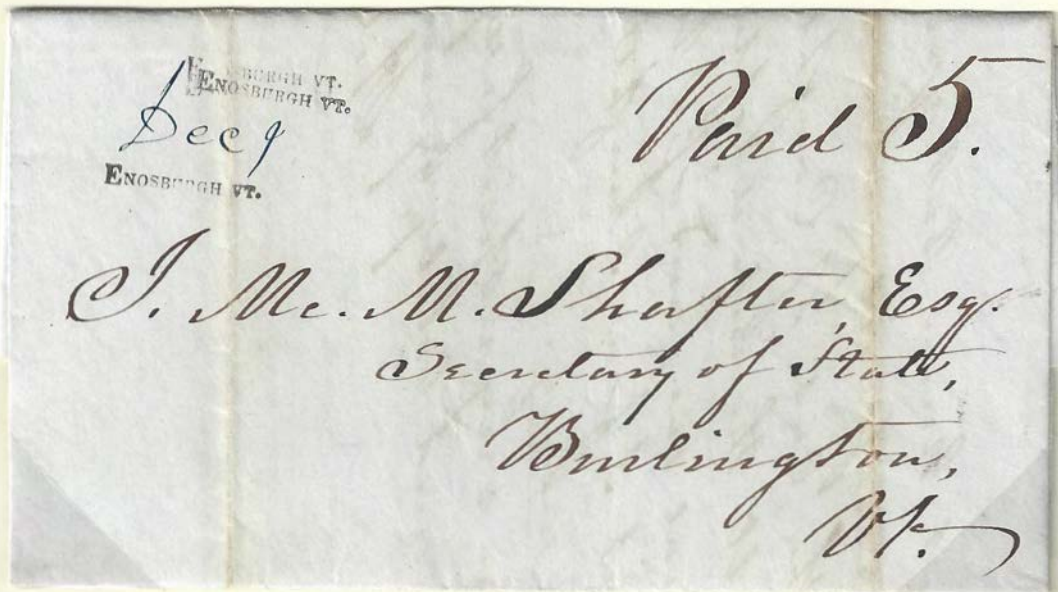 BURGH VT.
ENOSBURGH VT.
Dec 9
ENOSBURGH VT.
Paid 5.
J. Mc. M. Shafter, Esq.
Secretary of State,
Burlington,
Vt.